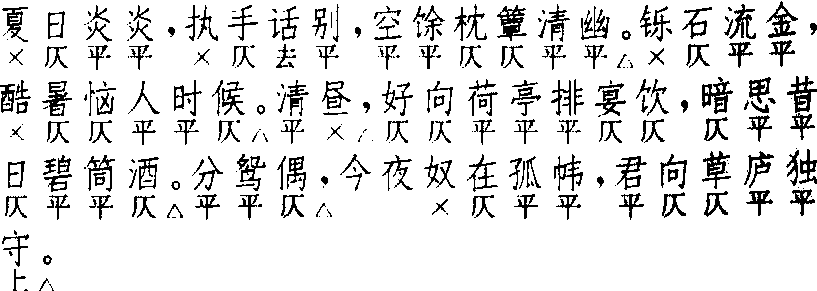 夏日炎炎，执手话别，空馀枕簟清幽。铄石流金，
×仄平平 ×仄去平 平平仄仄平平△×仄平平
酷暑恼人时候。清昼，好向荷亭排宴饮，暗思昔
×仄仄平平仄△平×△仄仄平平平仄仄 仄平平
日碧筒酒。分鸳偶，今夜奴在孤帏，君向草庐独
仄平平仄△平平仄△ ×仄平平 平仄仄平平
守。
上△